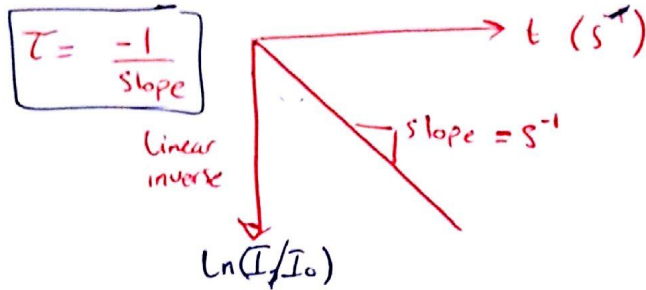 τ = -1 / slope
t (s⁻¹)
slope = s⁻¹
Linear
inverse
Ln(I/I₀)